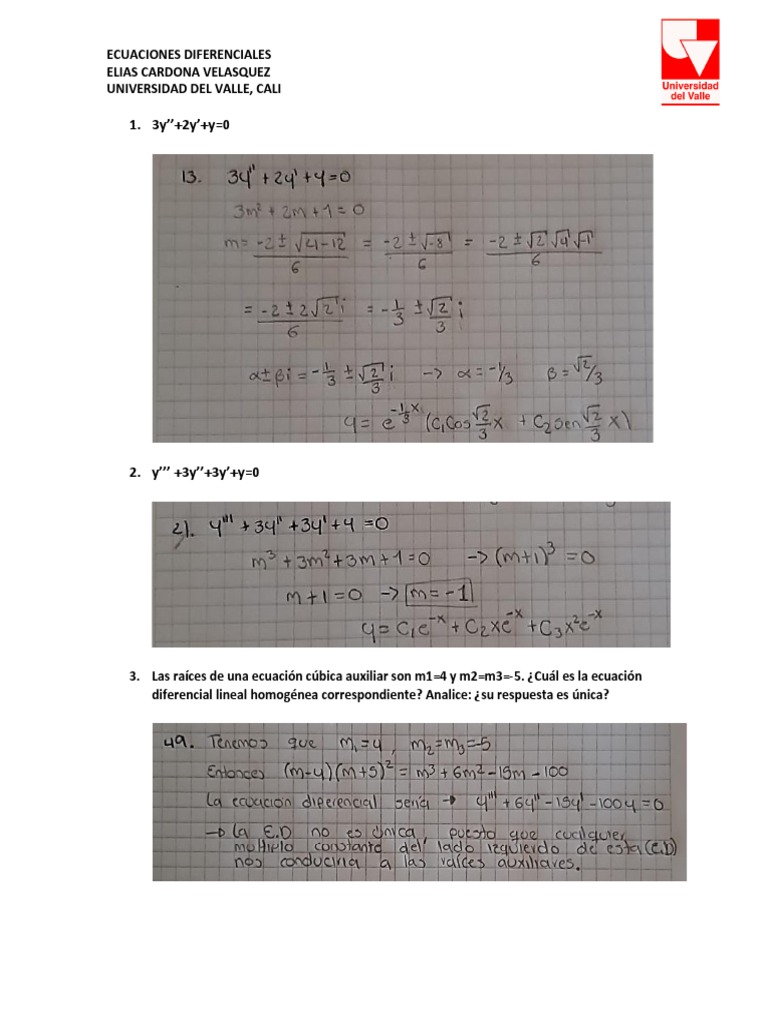 ECUACIONES DIFERENCIALES
ELIAS CARDONA VELASQUEZ
UNIVERSIDAD DEL VALLE, CALI
Universidad
del Valle
1. 3y’’+2y’+y=0
13. 3y'' + 2y' + y = 0
3m² + 2m + 1 = 0
m = (-2 ± √(4-12))/6 = (-2 ± √-8)/6 = (-2 ± √2 √4 √-1)/6
= (-2 ± 2√2 i)/6 = -1/3 ± √2/3 i
α±βi = -1/3 ± √2/3 i -> α = -1/3 β = √2/3
y = e^(-1/3 x) (C₁Cos √2/3 x + C₂Sen √2/3 x)
2. y’’’ +3y’’+3y’+y=0
21. y''' + 3y'' + 3y' + y = 0
m³ + 3m² + 3m + 1 = 0 -> (m+1)³ = 0
m + 1 = 0 -> m = -1
y = C₁e^-x + C₂xe^-x + C₃x²e^-x
3. Las raíces de una ecuación cúbica auxiliar son m1=4 y m2=m3=-5. ¿Cuál es la ecuación
diferencial lineal homogénea correspondiente? Analice: ¿su respuesta es única?
49. Tenemos que m₁=4, m₂=m₃=-5
Entonces (m-4)(m+5)² = m³ + 6m² - 15m - 100
La ecuación diferencial sería -> y''' + 6y'' - 15y' - 100y = 0
-> La E.D no es única, puesto que cualquier
multiplo constante del lado izquierdo de esta (E.D)
nos conduciria a las raíces auxiliares.